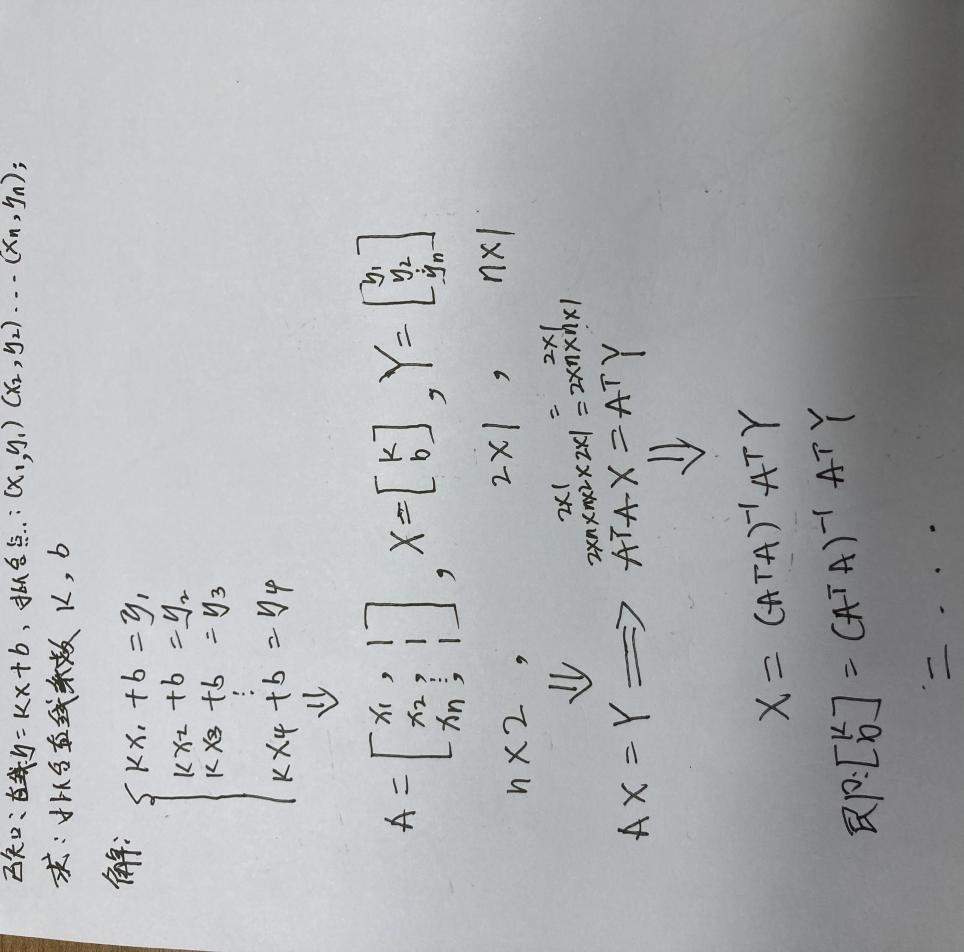 已知:直线y=kx+b,拟合点:(x₁,y₁)(x₂,y₂)····(xₙ,yₙ);
求:拟合直线系数 k,b
解:
{ kx₁+b=y₁
kx₂+b=y₂
kx₃+b=y₃
⋮
kx₄+b=y₄
⇓
A=[x₁,1 x₂,1 ⋮ xₙ,1], X=[k b], Y=[y₁ y₂ ⋮ yₙ]
n×2, 2×1, n×1
⇓
2×1 = 2×1
2×n×n×2×2×1=2×n×n×1
AX=Y ⟹ AᵀAX=AᵀY
⇓
X=(AᵀA)⁻¹AᵀY
即:[k b]=(AᵀA)⁻¹AᵀY
=····